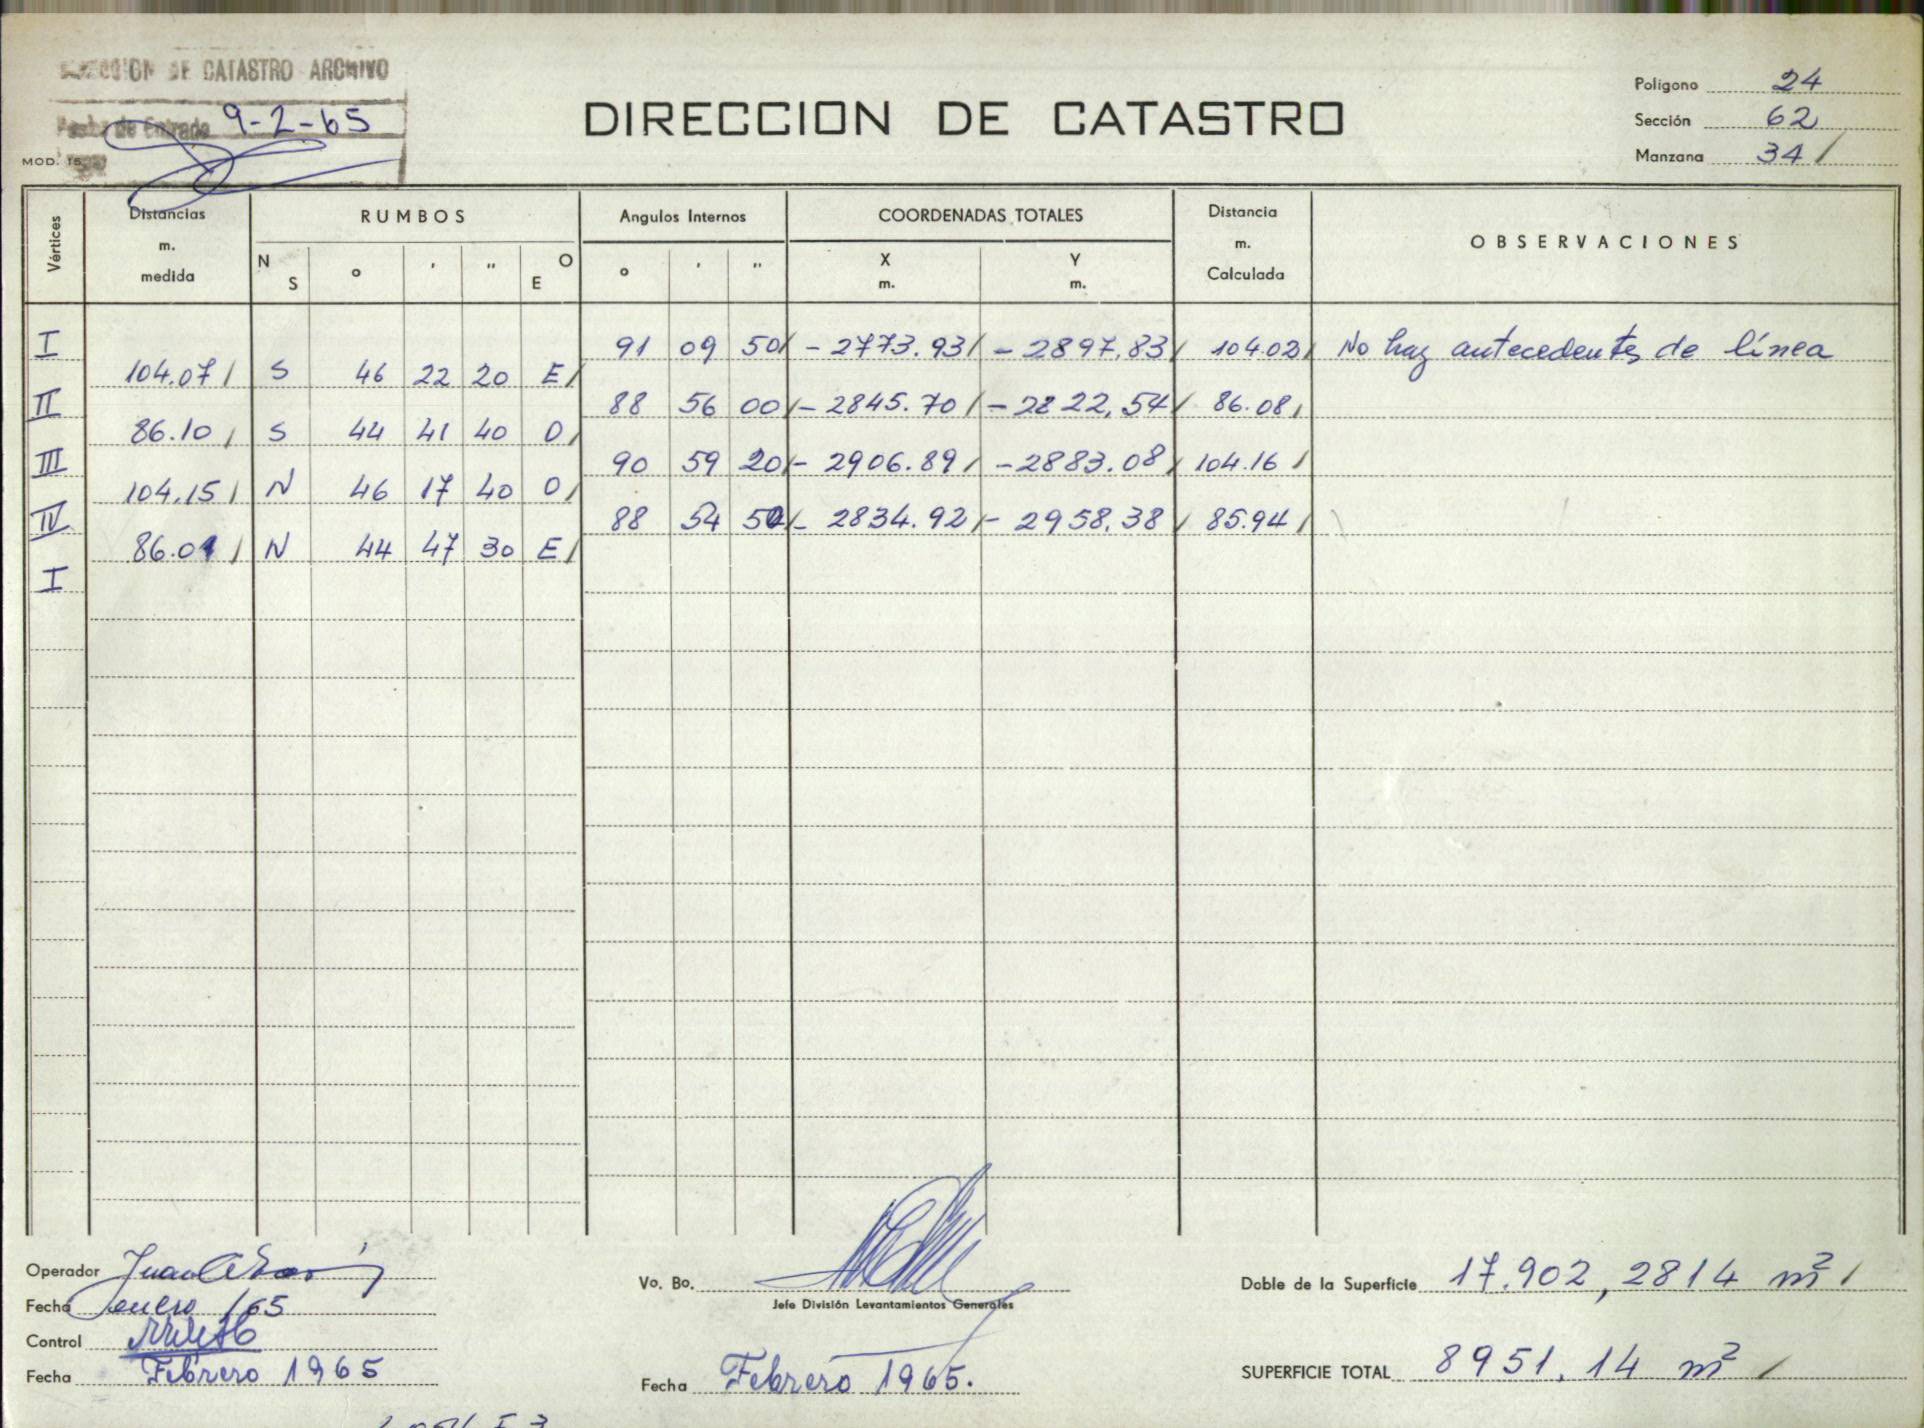 DIRECCION DE CATASTRO ARCHIVO
Fecha de Entrada 9-2-65
MOD. 15
DIRECCION DE CATASTRO
Poligono 24
Sección 62
Manzana 34 /
Vértices
Distancias m. medida
RUMBOS
N S ° ' " O E
Angulos Internos
° ' "
COORDENADAS TOTALES
X m. Y m.
Distancia m. Calculada
OBSERVACIONES
I 91 09 50/ - 2773.93/ - 2897,83/ 104.02/ No hay antecedentes de línea
104.07/ S 46 22 20 E/
II 88 56 00/ - 2845.70/ - 2822,54/ 86.08/
86.10/ S 44 41 40 O/
III 90 59 20/ - 2906.89/ - 2883.08/ 104.16/
104.15/ N 46 17 40 O/
IV 88 54 50/ - 2834.92/ - 2958.38/ 85.94/
86.01/ N 44 47 30 E/
I
Operador Juan
Fecha enero /65
Control
Fecha Febrero 1965
Vo. Bo.
Jefe División Levantamientos Generales
Fecha Febrero 1965.
Doble de la Superficie 17.902,2814 m² /
SUPERFICIE TOTAL 8951.14 m² /